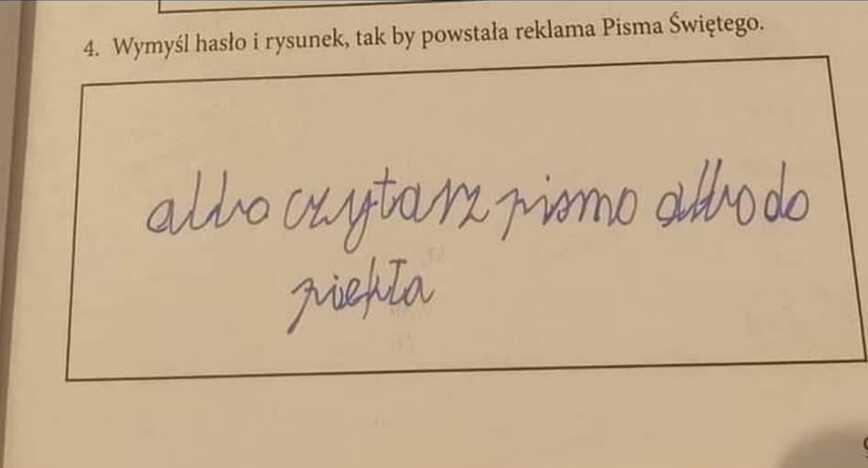 4. Wymyśl hasło i rysunek, tak by powstała reklama Pisma Świętego.
albo czytarz pismo albo do
piekła